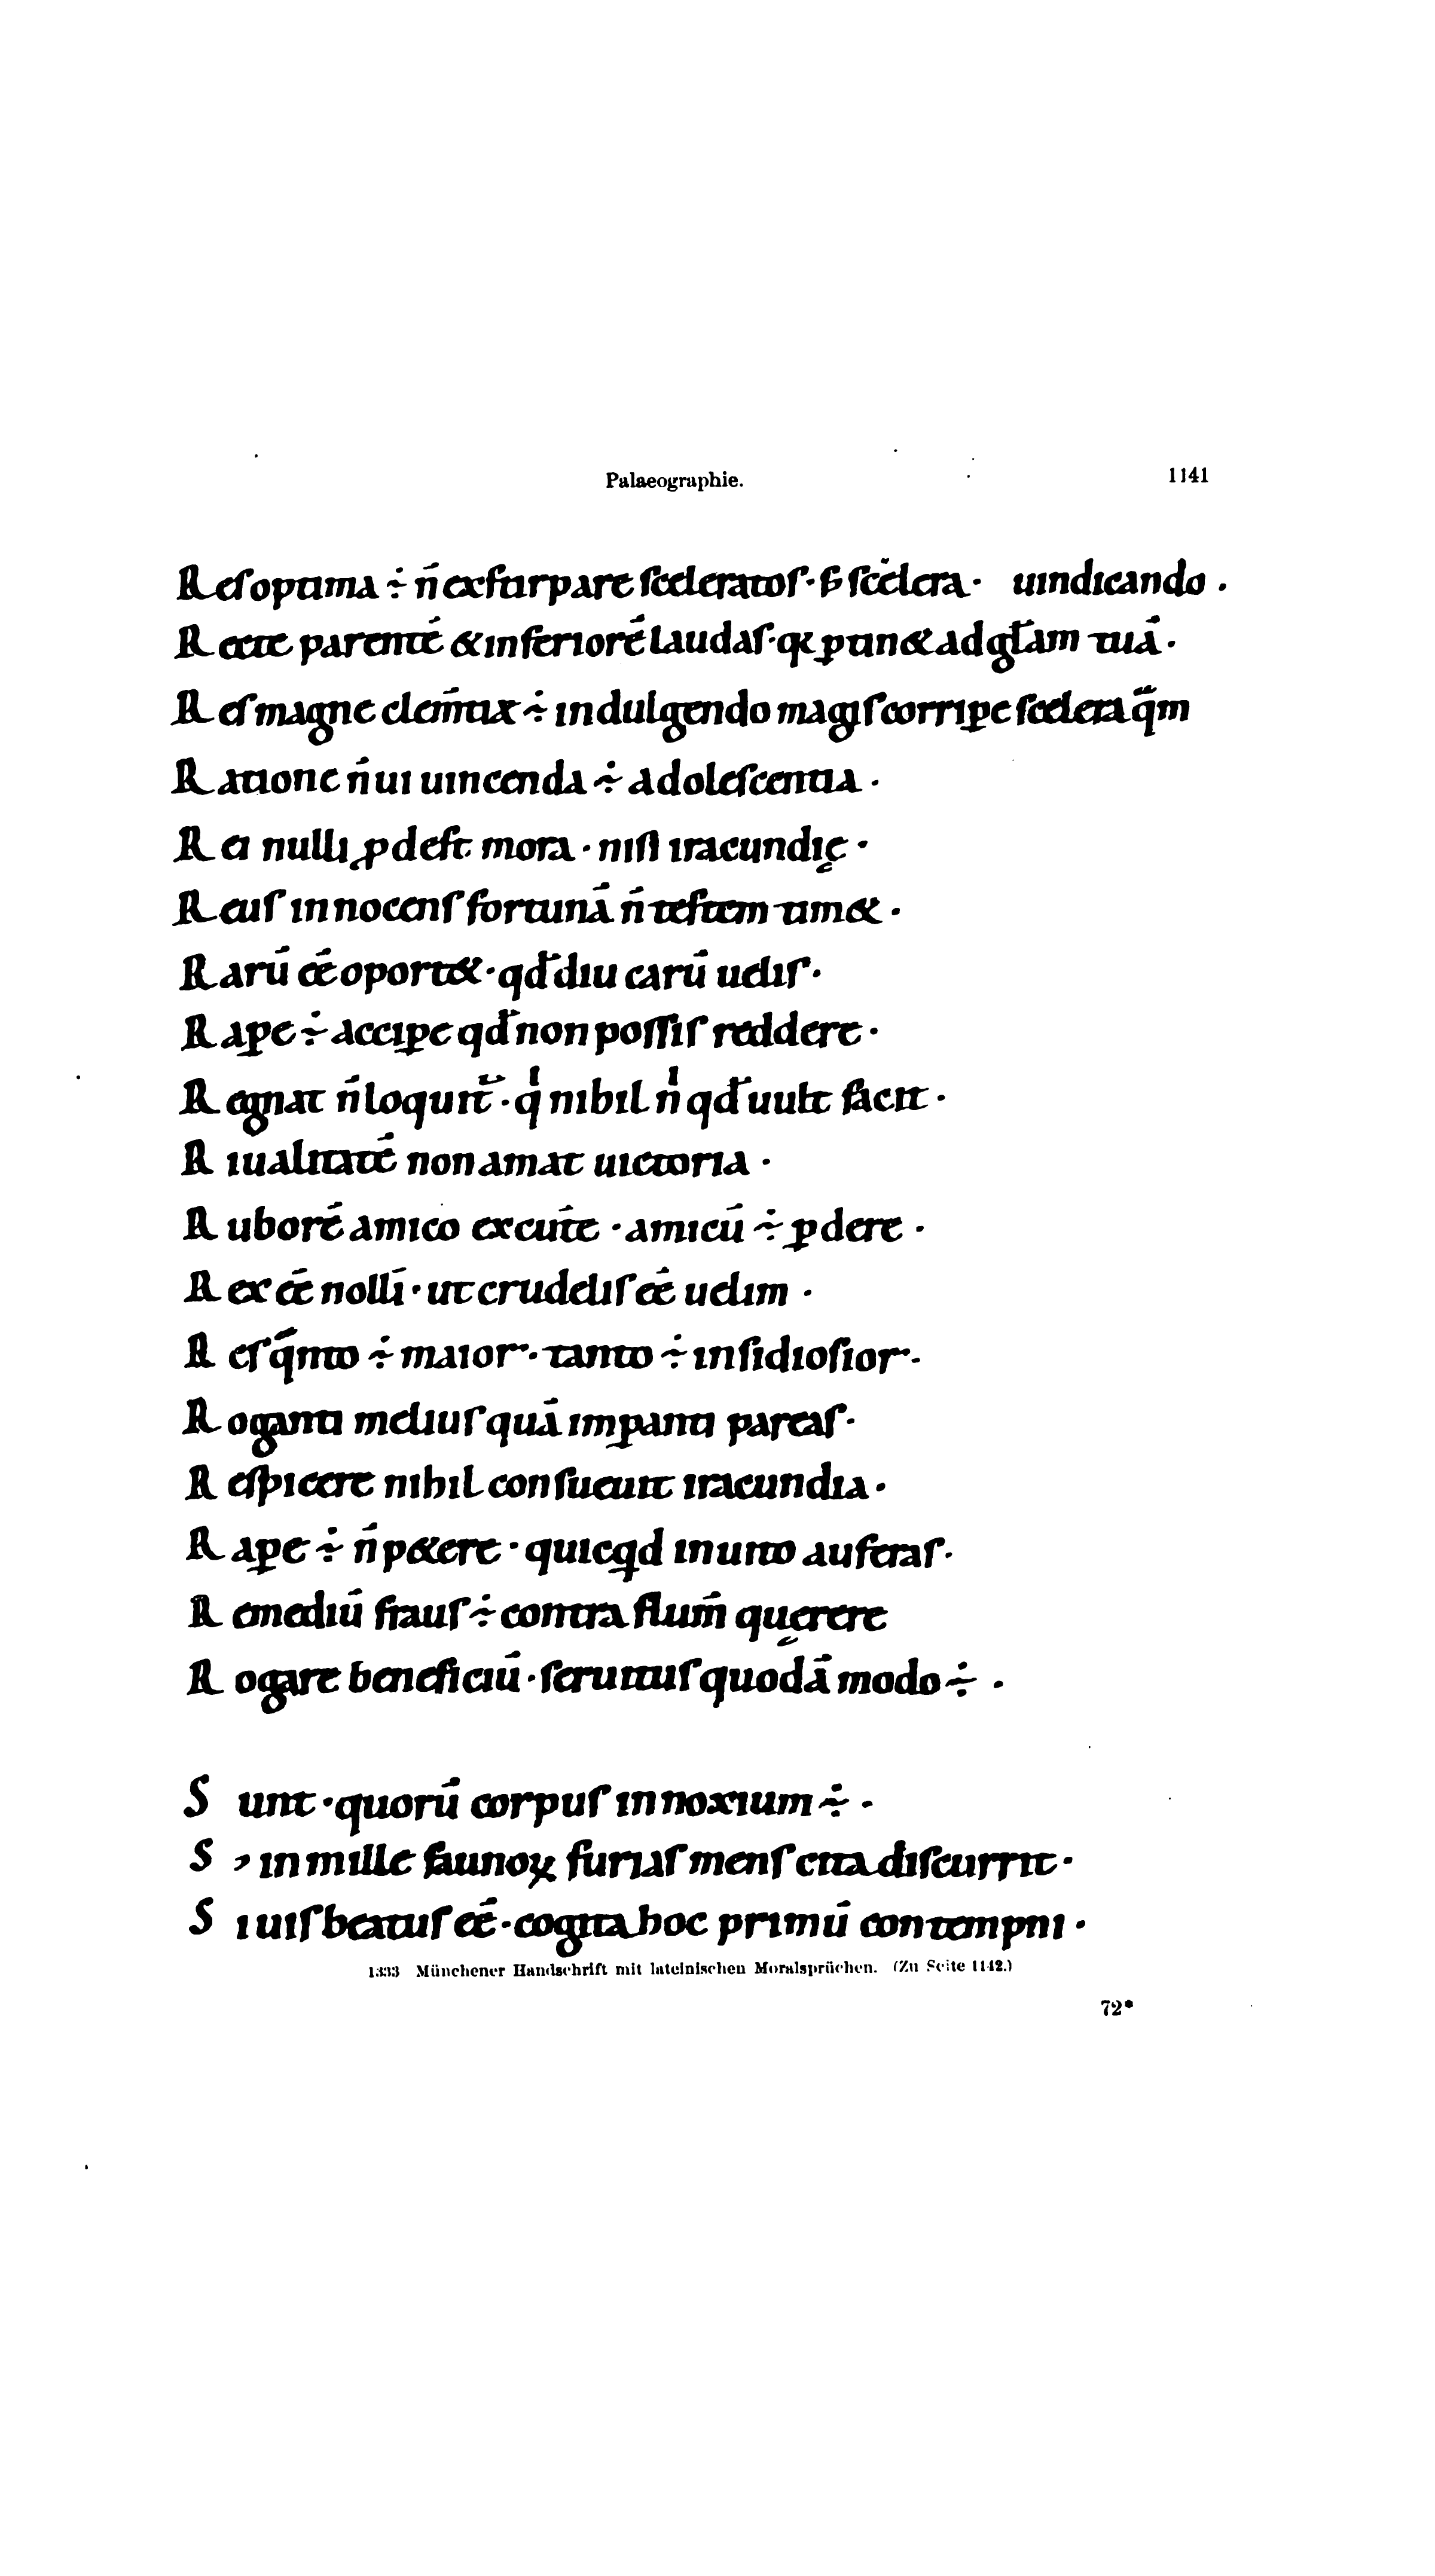 Palaeographie.
1141
Reſ optima ÷ n̄ exſtirpare ſceleratoſ · ſ; ſcelera · uindicando .
Recte parentē & inferiorē laudaſ · q; ꝑtin& ad gl̄am tuā .
Reſ magne clem̄tix ÷ indulgendo magiſ corripe ſcelera q̄m
Ratione n̄ ui uincenda ÷ adoleſcentia .
Rei nulli ꝓdeſt mora · niſi iracundię ·
Reuſ innocenſ fortunā n̄ teſtem tim& ·
Rarū eē oport& · qd̄ diu carū ueliſ ·
Rape ÷ accipe qd̄ non poſſiſ reddere ·
Regnat n̄ loquit᷑ · qͥ nihil nͥ qd̄ uult facit ·
Riualitatē non amat uictoria ·
Ruborē amico excut̄e · amicū ÷ ꝑdere ·
Rex eē nollī · ut crudeliſ eē uelim ·
Reſ q̄nto ÷ maior · tanto ÷ inſidioſior ·
Roganti meliuſ quā impanti pareaſ ·
Reſpicere nihil conſueuit iracundia ·
Rape ÷ n̄ p&ere · quicqd inuito auferaſ ·
Remediū frauſ ÷ contra flum̄ quęrere
Rogare beneficiū · ſeruituſ quodā modo ÷ .
Sunt · quorū corpuſ innoxium ÷ .
S, in mille faunoꝝ furiaſ menſ cita diſcurrit ·
Si uiſ beatuſ eē · cogita hoc primū contempni ·
1333 Münchener Handschrift mit lateinischen Moralsprüchen. (Zu Seite 1142.)
72*